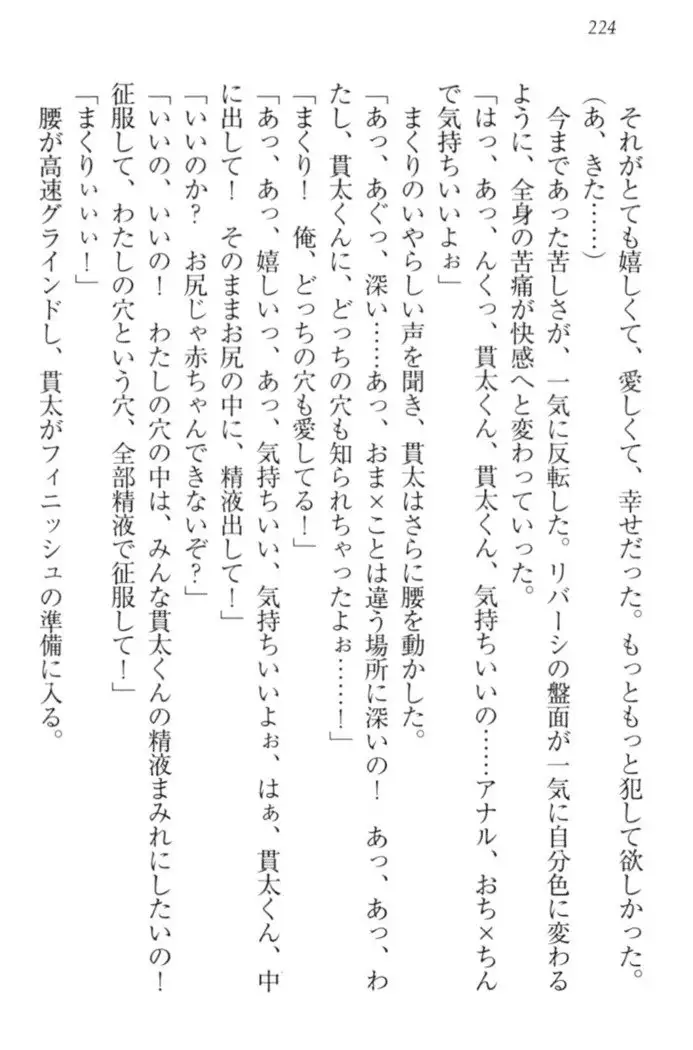 224
それがとても嬉しくて、愛しくて、幸せだった。もっともっと犯して欲しかった。
(あ、きた……)
今まであった苦しさが、一気に反転した。リバーシの盤面が一気に自分色に変わる
ように、全身の苦痛が快感へと変わっていった。
「はっ、あっ、んくっ、貫太くん、貫太くん、気持ちいいの……アナル、おち×ちん
で気持ちいいよぉ」
まくりのいやらしい声を聞き、貫太はさらに腰を動かした。
「あっ、あぐっ、深い……あっ、おま×ことは違う場所に深いの！　あっ、あっ、わ
たし、貫太くんに、どっちの穴も知られちゃったよぉ……！」
「まくり！　俺、どっちの穴も愛してる！」
「あっ、あっ、嬉しいっ、あっ、気持ちいい、気持ちいいよぉ、はぁ、貫太くん、中
に出して！　そのままお尻の中に、精液出して！」
「いいのか？　お尻じゃ赤ちゃんできないぞ？」
「いいの、いいの！　わたしの穴の中は、みんな貫太くんの精液まみれにしたいの！
征服して、わたしの穴という穴、全部精液で征服して！」
「まくりぃぃぃ！」
腰が高速グラインドし、貫太がフィニッシュの準備に入る。